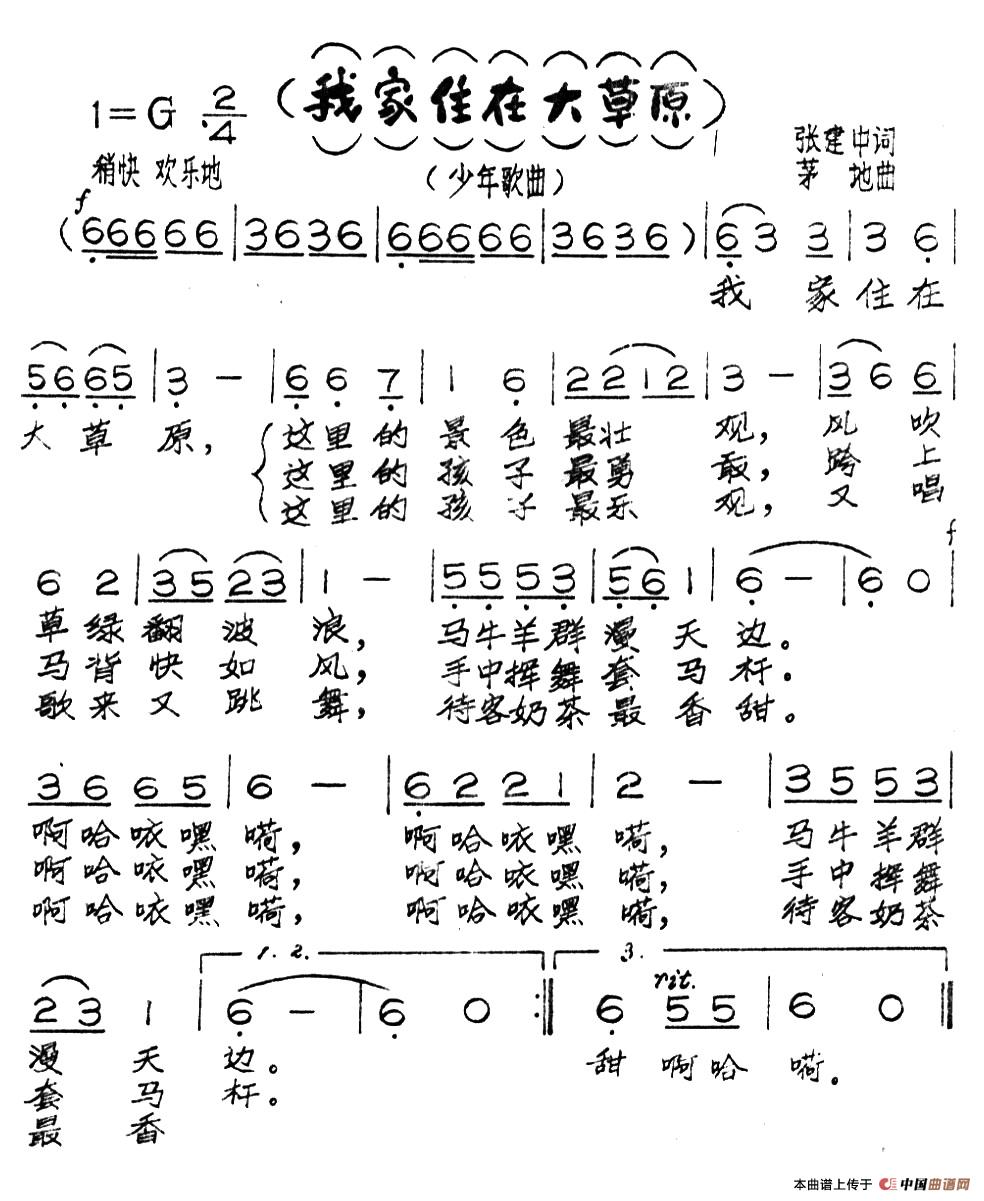 (我家住在大草原)
1=G 2/4
张建中词
稍快 欢乐地
(少年歌曲)
茅 地曲
f
(666666|3636|666666|3636)|63 3|3 6|
我 家住在
5665|3 -|667|1 6|2212|3 -|36 6|
大草原, 这里的景色最壮 观, 风 吹
这里的孩子最勇 敢, 跨 上
这里的孩子最乐 观, 又 唱
f
6 2|3523|1 -|5553|56 1|6 -|6 0|
草绿翻波 浪, 马牛羊群漫天边。
马背快如 风, 手中挥舞套马杆。
歌来又跳 舞, 待客奶茶最香甜。
3665|6 -|6221|2 -|3553|
啊哈咴嘿 嗬, 啊哈咴嘿 嗬, 马牛羊群
啊哈咴嘿 嗬, 啊哈咴嘿 嗬, 手中挥舞
啊哈咴嘿 嗬, 啊哈咴嘿 嗬, 待客奶茶
1. 2. 3.
rit.
23 1|6 -|6 0:‖6 55|6 0‖
漫 天 边。 甜 啊哈 嗬。
套 马 杆。
最 香
本曲谱上传于 中国曲谱网